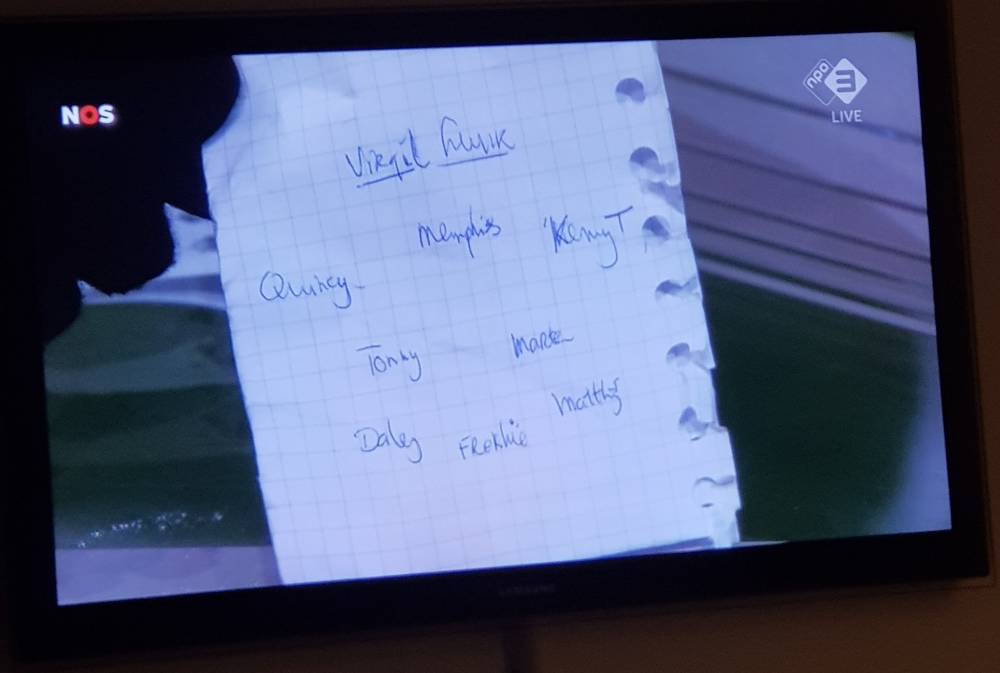 NOS
npo 3
LIVE
Virgil Luuk
Memphis Kenny T
Quincy
Tonny Marten
Matthijs
Daley FRENKie